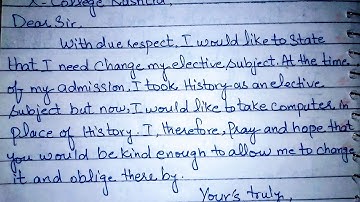 X- College Rashtra,
Dear Sir,
With due respect, I would like to state
that I need change my elective subject. At the time
of my admission, I took History as an elective
subject but now, I would like to take computer in
place of History. I, therefore, Pray and hope that
you would be kind enough to allow me to change
it and oblige there by.
Your's truly,